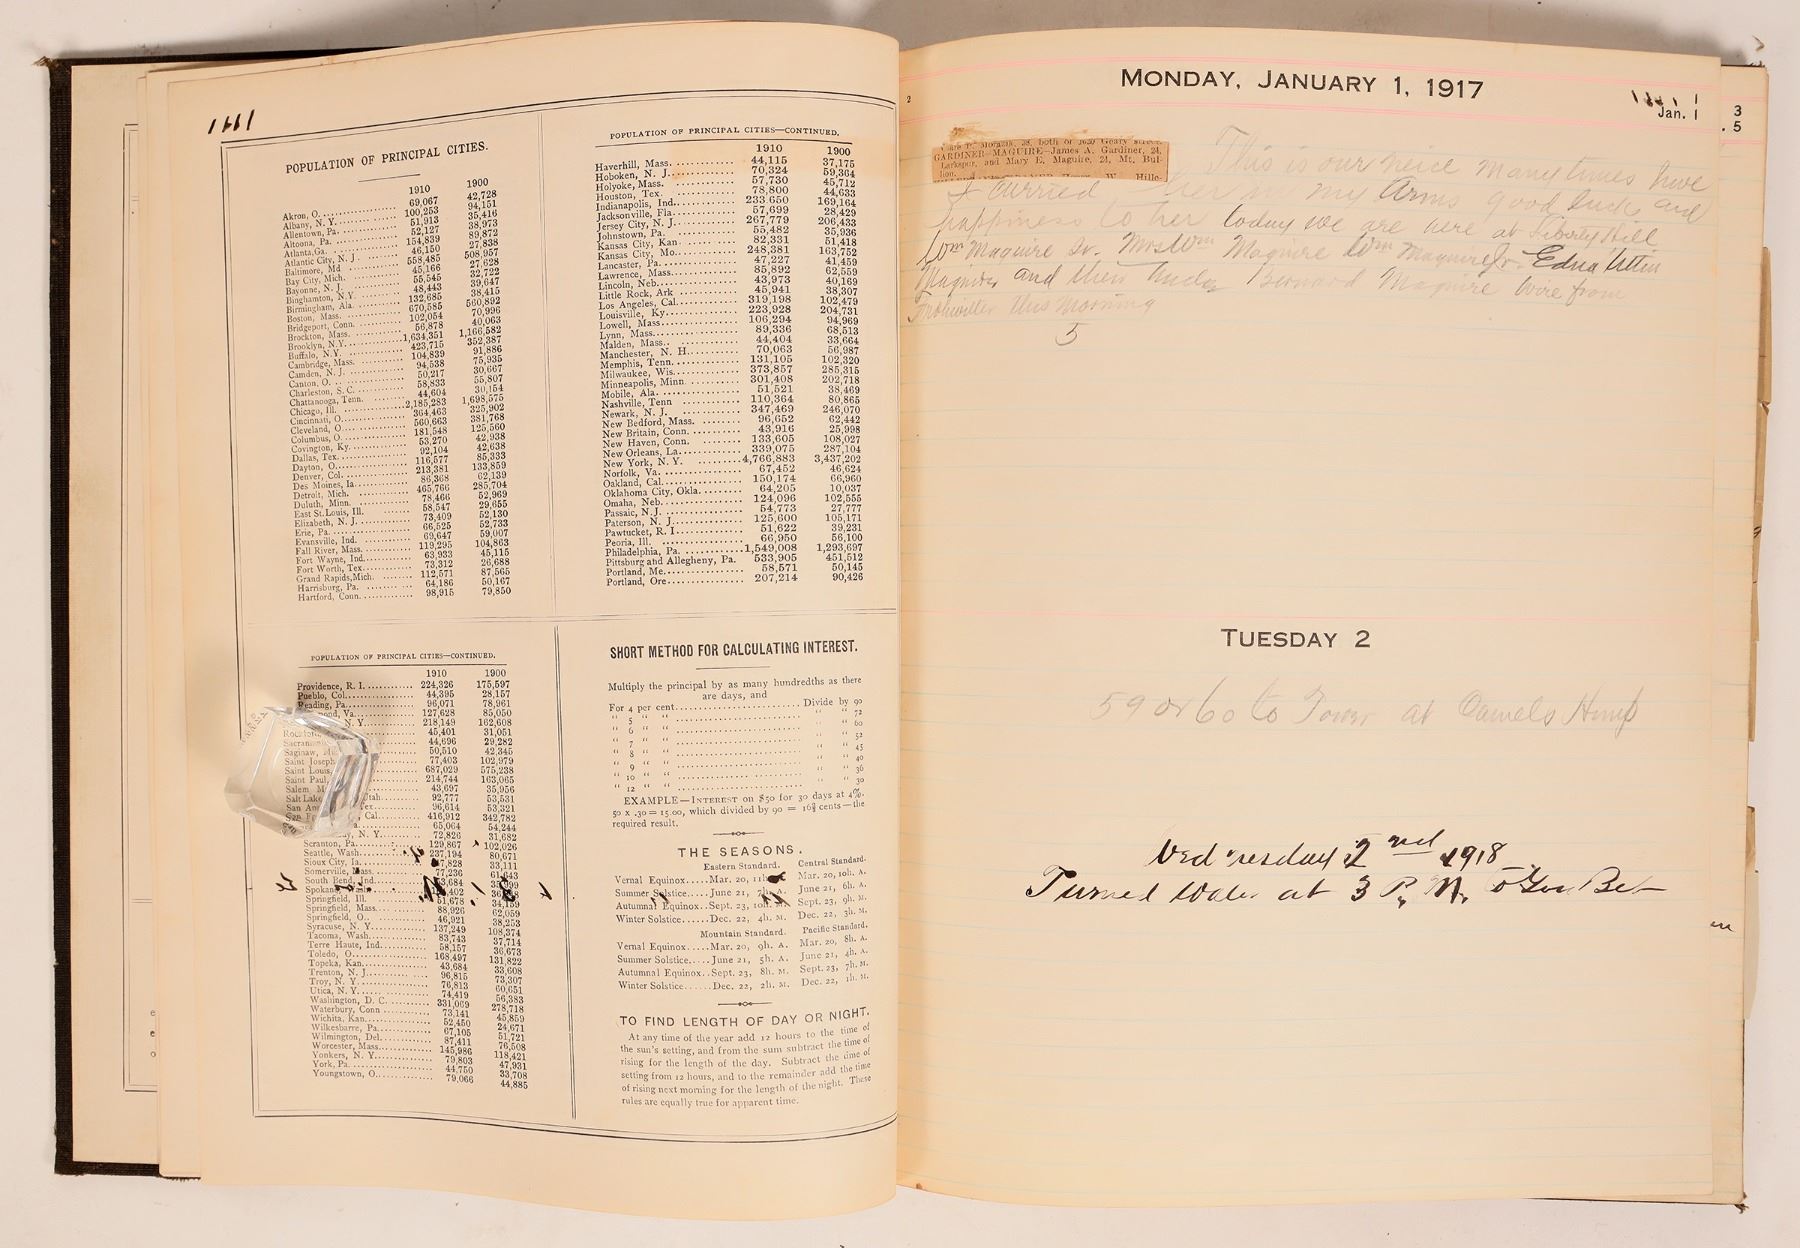 POPULATION OF PRINCIPAL CITIES.
1910 1900
Akron, O. 69,067 42,728
Albany, N. Y. 100,253 94,151
Allentown, Pa. 51,913 35,416
Altoona, Pa. 52,127 38,973
Atlanta, Ga. 154,839 89,872
Atlantic City, N. J. 46,150 27,838
Baltimore, Md 558,485 508,957
Bay City, Mich. 45,166 27,628
Bayonne, N. J. 55,545 32,722
Binghamton, N.Y. 48,443 39,647
Birmingham, Ala 132,685 38,415
Boston, Mass. 670,585 560,892
Bridgeport, Conn. 102,054 70,996
Brockton, Mass. 56,878 40,063
Brooklyn, N.Y. 1,634,351 1,166,582
Buffalo, N.Y. 423,715 352,387
Cambridge, Mass. 104,839 91,886
Camden, N. J. 94,538 75,935
Canton, O. 50,217 30,667
Charleston, S. C. 58,833 55,807
Chattanooga, Tenn. 44,604 30,154
Chicago, Ill. 2,185,283 1,698,575
Cincinnati, O. 364,463 325,902
Cleveland, O. 560,663 381,768
Columbus, O. 181,548 125,560
Covington, Ky. 53,270 42,938
Dallas, Tex. 92,104 42,638
Dayton, O. 116,577 85,333
Denver, Col. 213,381 133,859
Des Moines, Ia. 86,368 62,139
Detroit, Mich. 465,766 285,704
Duluth, Minn. 78,466 52,969
East St. Louis, Ill. 58,547 29,655
Elizabeth, N. J. 73,409 52,130
Erie, Pa. 66,525 52,733
Evansville, Ind. 69,647 59,007
Fall River, Mass. 119,295 104,863
Fort Wayne, Ind. 63,933 45,115
Fort Worth, Tex. 73,312 26,688
Grand Rapids, Mich. 112,571 87,565
Harrisburg, Pa. 64,186 50,167
Hartford, Conn. 98,915 79,850
POPULATION OF PRINCIPAL CITIES—CONTINUED.
1910 1900
Haverhill, Mass. 44,115 37,175
Hoboken, N. J. 70,324 59,364
Holyoke, Mass. 57,730 45,712
Houston, Tex. 78,800 44,633
Indianapolis, Ind. 233,650 169,164
Jacksonville, Fla. 57,699 28,429
Jersey City, N. J. 267,779 206,433
Johnstown, Pa. 55,482 35,936
Kansas City, Kan. 82,331 51,418
Kansas City, Mo. 248,381 163,752
Lancaster, Pa. 47,227 41,459
Lawrence, Mass. 85,892 62,559
Lincoln, Neb. 43,973 40,169
Little Rock, Ark 45,941 38,307
Los Angeles, Cal. 319,198 102,479
Louisville, Ky. 223,928 204,731
Lowell, Mass. 106,294 94,969
Lynn, Mass. 89,336 68,513
Malden, Mass. 44,404 33,664
Manchester, N. H. 70,063 56,987
Memphis, Tenn. 131,105 102,320
Milwaukee, Wis. 373,857 285,315
Minneapolis, Minn. 301,408 202,718
Mobile, Ala. 51,521 38,469
Nashville, Tenn 110,364 80,865
Newark, N. J. 347,469 246,070
New Bedford, Mass. 96,652 62,442
New Britain, Conn. 43,916 25,998
New Haven, Conn. 133,605 108,027
New Orleans, La. 339,075 287,104
New York, N. Y. 4,766,883 3,437,202
Norfolk, Va. 67,452 46,624
Oakland, Cal. 150,174 66,960
Oklahoma City, Okla. 64,205 10,037
Omaha, Neb. 124,096 102,555
Passaic, N.J. 54,773 27,777
Paterson, N. J. 125,600 105,171
Pawtucket, R. I. 51,622 39,231
Peoria, Ill. 66,950 56,100
Philadelphia, Pa. 1,549,008 1,293,697
Pittsburg and Allegheny, Pa. 533,905 451,512
Portland, Me. 58,571 50,145
Portland, Ore. 207,214 90,426
POPULATION OF PRINCIPAL CITIES—CONTINUED.
1910 1900
Providence, R. I. 224,326 175,597
Pueblo, Col. 44,395 28,157
Reading, Pa. 96,071 78,961
Va. 127,628 85,050
N. Y. 218,149 162,608
45,401 31,051
44,696 29,282
Saginaw, 50,510 42,345
Saint Joseph 77,403 102,979
Saint Louis, 687,029 575,238
Saint Paul, 214,744 163,065
Salem 43,697 35,956
Salt Lake Utah 92,777 53,531
96,614 53,321
Cal. 416,912 342,782
65,064 54,244
N. Y. 72,826 31,682
Scranton, Pa. 129,867 102,026
Seattle, Wash. 237,194 80,671
Sioux City, Ia. 33,111
Somerville, Mass. 77,236 61,643
South Bend, Ind.
Springfield, Ill. 51,678 34,159
Springfield, Mass. 88,926 62,059
Springfield, O. 46,921 38,253
Syracuse, N. Y. 137,249 108,374
Tacoma, Wash. 83,743 37,714
Terre Haute, Ind. 58,157 36,673
Toledo, O. 168,497 131,822
Topeka, Kan. 43,684 33,608
Trenton, N. J. 96,815 73,307
Troy, N. Y. 76,813 60,651
Utica, N. Y. 74,419 56,383
Washington, D. C. 331,069 278,718
Waterbury, Conn 73,141 45,859
Wichita, Kan. 52,450 24,671
Wilkesbarre, Pa. 67,105 51,721
Wilmington, Del. 87,411 76,508
Worcester, Mass. 145,986 118,421
Yonkers, N. Y. 79,803 47,931
York, Pa. 44,750 33,708
Youngstown, O. 79,066 44,885
SHORT METHOD FOR CALCULATING INTEREST.
Multiply the principal by as many hundredths as there
are days, and
For 4 per cent. Divide by 90
" 5 " " " " 72
" 6 " " " " 60
" 7 " " " " 52
" 8 " " " " 45
" 9 " " " " 40
" 10 " " " " 36
" 12 " " " " 30
EXAMPLE—INTEREST on $50 for 30 days at 4%.
50 x .30 = 15.00, which divided by 90 = 16⅔ cents—the
required result.
THE SEASONS.
Eastern Standard. Central Standard.
Vernal Equinox.....Mar. 20, 11h. Mar. 20, 10h. A.
Summer Solstice....June 21, 7h. A. June 21, 6h. A.
Autumnal Equinox..Sept. 23, 10h. M. Sept. 23, 9h. M.
Winter Solstice.....Dec. 22, 4h. M. Dec. 22, 3h. M.
Mountain Standard. Pacific Standard.
Vernal Equinox.....Mar. 20, 9h. A. Mar. 20, 8h. A.
Summer Solstice....June 21, 5h. A. June 21, 4h. A.
Autumnal Equinox..Sept. 23, 8h. M. Sept. 23, 7h. M.
Winter Solstice......Dec. 22, 2h. M. Dec. 22, 1h. M.
TO FIND LENGTH OF DAY OR NIGHT.
At any time of the year add 12 hours to the time of
the sun's setting, and from the sum subtract the time of
rising for the length of the day. Subtract the time of
setting from 12 hours, and to the remainder add the time
of rising next morning for the length of the night. These
rules are equally true for apparent time.
2
MONDAY, JANUARY 1, 1917
Jan. 1
3
. 5
28, both of 1620 Geary street.
GARDINER—MAGUIRE—James A. Gardiner, 24,
Larkspur, and Mary E. Maguire, 24, Mt. Bul-
lion.
This is our neice many times have
I carried her in my Arms good luck and
happiness to her today we are here at Liberty Hill
Wm Maguire Sr. Mrs Wm Maguire Wm Maguire Jr. Edna
Maguire and their Uncle Bernard Maguire Wire from
this morning
5
TUESDAY 2
59 or 60 to Tower at Camels Hump
Wednesday 2nd 1918
Turned Water at 3 P. M.